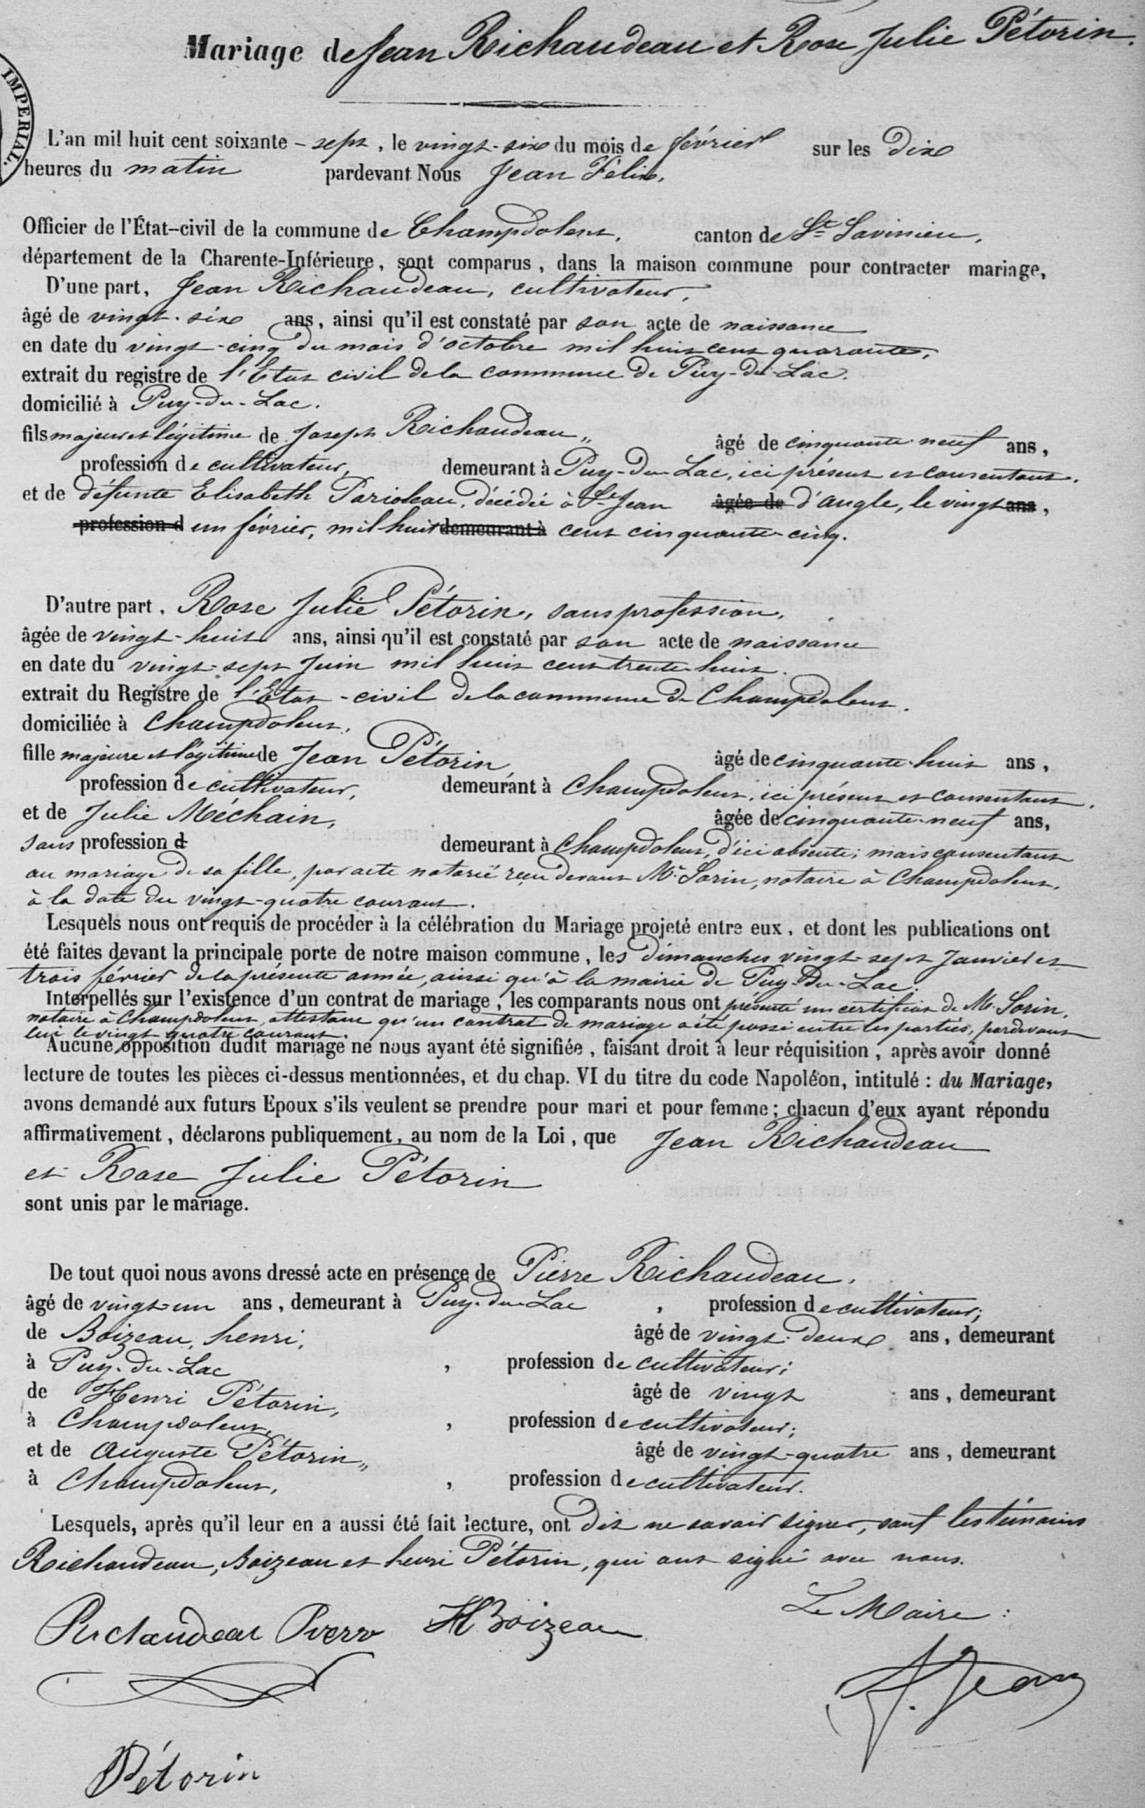 IMPERIAL.
Mariage de Jean Richaudeau et Rose Julie Pétorin.
L'an mil huit cent soixante-sept, le vingt-six du mois de février sur les dix
heures du matin pardevant Nous Jean Félix,
Officier de l'État-civil de la commune de Champdolent, canton de St Savinien,
département de la Charente-Inférieure, sont comparus, dans la maison commune pour contracter mariage,
D'une part, Jean Richaudeau, cultivateur,
âgé de vingt-six ans, ainsi qu'il est constaté par son acte de naissance
en date du vingt-cinq du mois d'octobre mil huit cent quarante,
extrait du registre de l'Etat civil de la commune de Puy-du-Lac.
domicilié à Puy-du-Lac.
fils majeur et légitime de Joseph Richaudeau, âgé de cinquante-neuf ans,
profession de cultivateur, demeurant à Puy-du-Lac, ici présent et consentant.
et de défunte Elisabeth Parioleau, décédée à St Jean âgée de d'angle, le vingt ans,
profession d un février, mil huit demeurant à cent cinquante-cinq.
D'autre part, Rose Julie Pétorin, sans profession,
âgée de vingt-huit ans, ainsi qu'il est constaté par son acte de naissance
en date du vingt-sept Juin mil huit cent trente-huit.
extrait du Registre de l'Etat-civil de la commune de Champdolent.
domiciliée à Champdolent,
fille majeure et légitime de Jean Pétorin âgé de cinquante-huit ans,
profession de cultivateur, demeurant à Champdolent, ici présent et consentant.
et de Julie Méchain, âgée de cinquante-neuf ans,
sans profession d demeurant à Champdolent, d'ici absente; mais consentant
au mariage de sa fille, par acte notarié reçu devant Mr Sorin, notaire à Champdolent,
à la date du vingt-quatre courant.
Lesquels nous ont requis de procéder à la célébration du Mariage projeté entre eux, et dont les publications ont
été faites devant la principale porte de notre maison commune, les dimanches vingt-sept Janvier et
trois février de la présente année, ainsi qu'à la mairie de Puy-du-Lac.
Interpellés sur l'existence d'un contrat de mariage, les comparants nous ont présenté un certificat de Mr Sorin,
notaire à Champdolent, attestant qu'un contrat de mariage a été passé entre les parties, pardevant
lui le vingt-quatre courant.
Aucune opposition dudit mariage ne nous ayant été signifiée, faisant droit à leur réquisition, après avoir donné
lecture de toutes les pièces ci-dessus mentionnées, et du chap. VI du titre du code Napoléon, intitulé : du Mariage,
avons demandé aux futurs Epoux s'ils veulent se prendre pour mari et pour femme; chacun d'eux ayant répondu
affirmativement, déclarons publiquement, au nom de la Loi, que Jean Richaudeau
et Rose Julie Pétorin
sont unis par le mariage.
De tout quoi nous avons dressé acte en présence de Pierre Richaudeau,
âgé de vingt-un ans, demeurant à Puy-du-Lac, profession de cultivateur;
de Boizeau, henri, âgé de vingt-deux ans, demeurant
à Puy-du-Lac, profession de cultivateur;
de Henri Pétorin, âgé de vingt ans, demeurant
à Champdolent, profession de cultivateur;
et de Auguste Pétorin, âgé de vingt-quatre ans, demeurant
à Champdolent, profession de cultivateur.
Lesquels, après qu'il leur en a aussi été fait lecture, ont dit ne savoir signer, sauf les témoins
Richaudeau, Boizeau et henri Pétorin, qui ont signé avec nous.
Le Maire :
Richaudeau Pierre H Boizeau
F. Jean
Pétorin